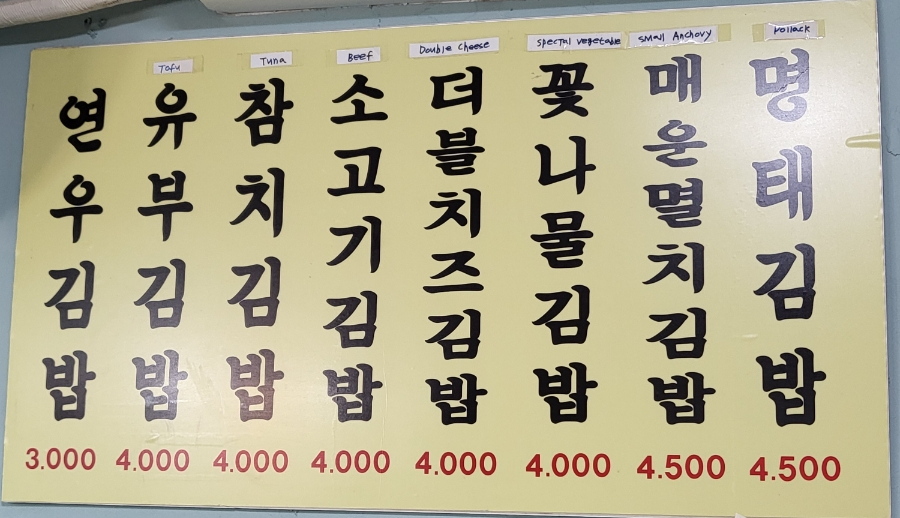 연우김밥
3.000
Tofu
유부김밥
4.000
Tuna
참치김밥
4.000
Beef
소고기김밥
4.000
Double Cheese
더블치즈김밥
4.000
Special Vegetable
꽃나물김밥
4.000
Small Anchovy
매운멸치김밥
4.500
Pollack
명태김밥
4.500